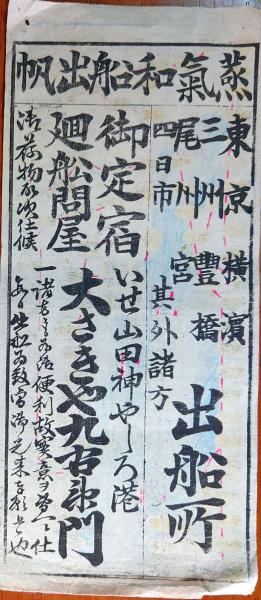 蒸氣和船出帆
東京横濱
三州豐橋
尾州宮
四日市
其外諸方
出船所
御定宿
いせ山田神やしろ港
廻船問屋
大さきや九右衛門
御荷物取次仕候